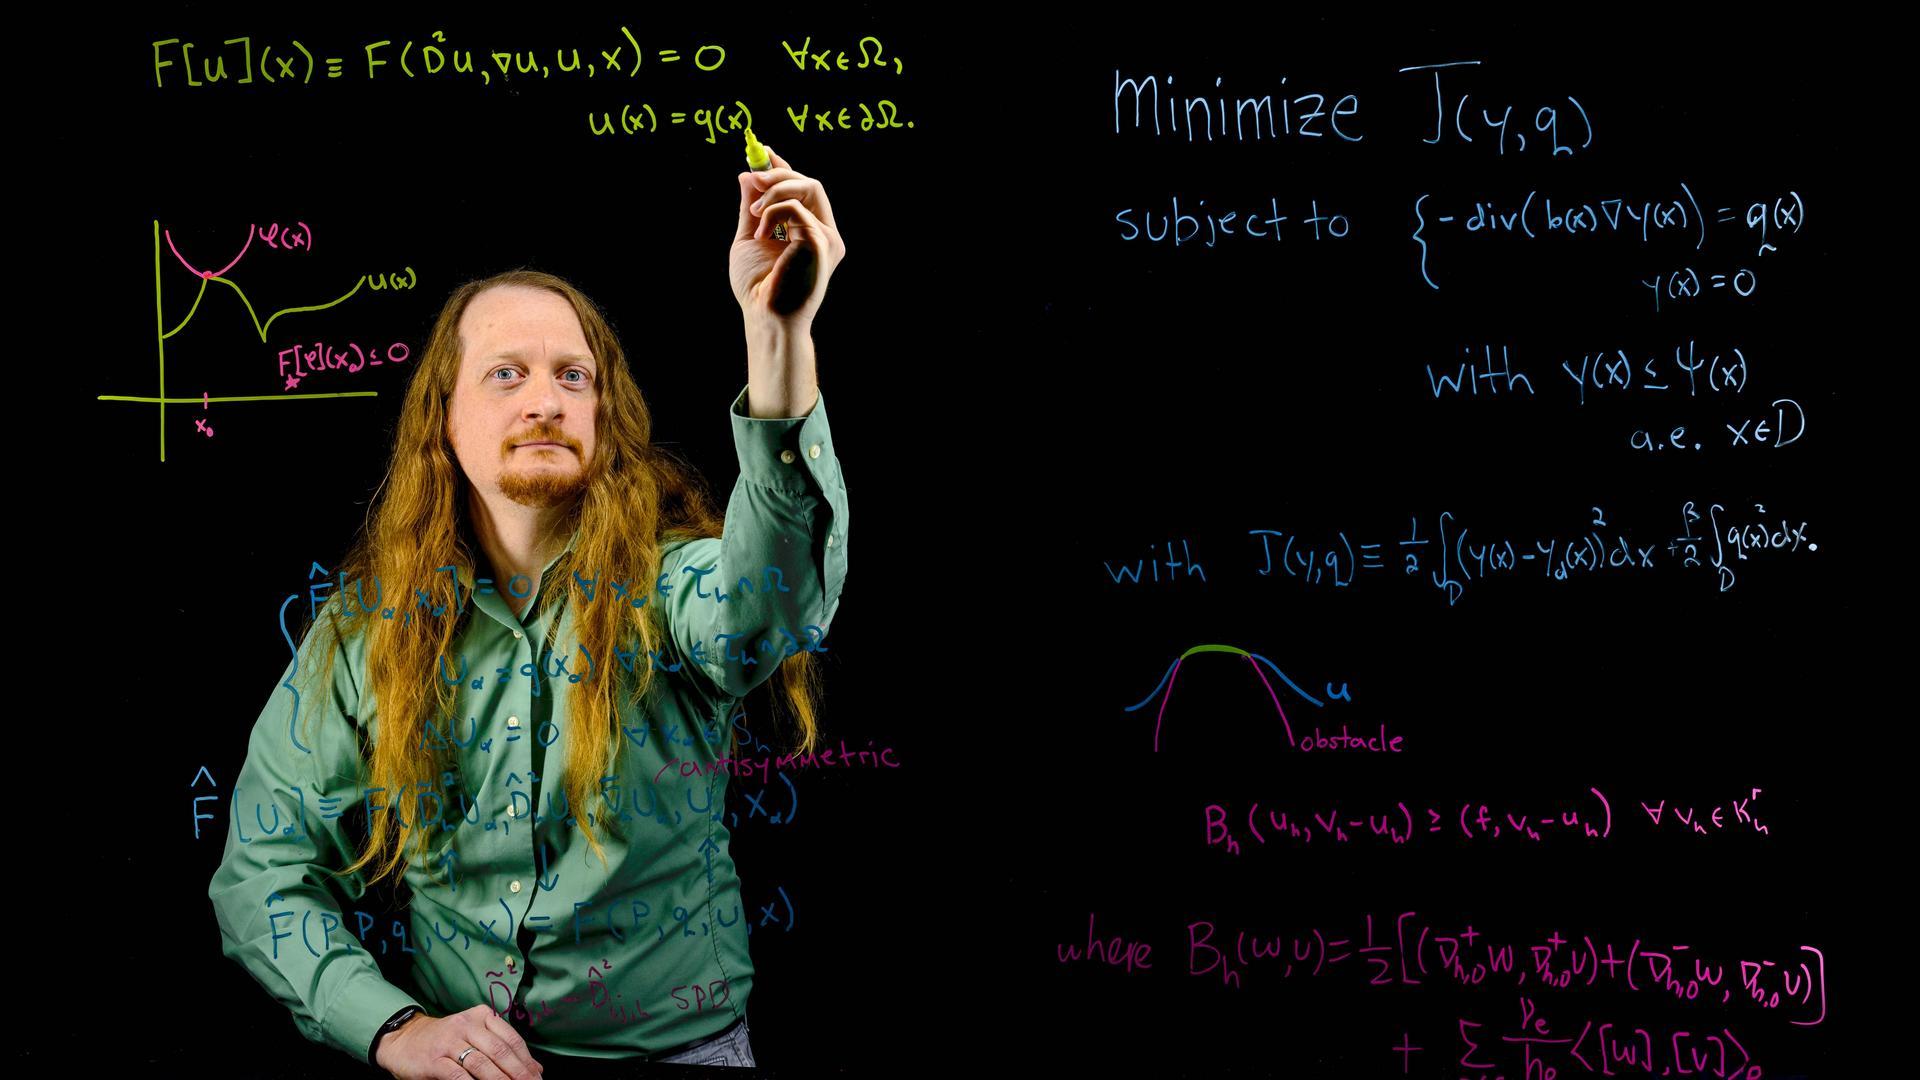 F[u](x) ≡ F(D²u, ∇u, u, x) = 0 ∀x∈Ω,
u(x) = g(x) ∀x∈∂Ω.
φ(x)
u(x)
F[φ](x₀) ≤ 0
x₀
F̂[U_α, x_α] = 0 ∀ x_α ∈ T_h ∩ Ω
U_α = g(x_α) ∀ x_α ∈ T_h ∩ ∂Ω
ΔU_α = 0 ∀ x_α ∈ S_h
antisymmetric
F̂[U_α] ≡ F(D̃²_h U_α, D̂²_h U_α, ∇̃_h U_α, U_α, x_α)
F̂(P, P, q, u, x) = F(P, q, u, x)
D̃²_{ij,h} - D̂²_{ij,h} SPD
Minimize J(y,q)
subject to { -div(b(x)∇y(x)) = q(x)
y(x) = 0
with y(x) ≤ ψ(x)
a.e. x∈D
with J(y,q) ≡ 1/2 ∫_D (y(x) - y_d(x))² dx + β/2 ∫_D q(x)² dx.
u
obstacle
B_h(u_h, v_h - u_h) ≥ (f, v_h - u_h) ∀ v_h ∈ K_h^r
where B_h(w,v) = 1/2 [(∇⁺_{h,0} w, ∇⁺_{h,0} v) + (∇⁻_{h,0} w, ∇⁻_{h,0} v)]
+ Σ γ_e/h_e ⟨[w],[v]⟩_e